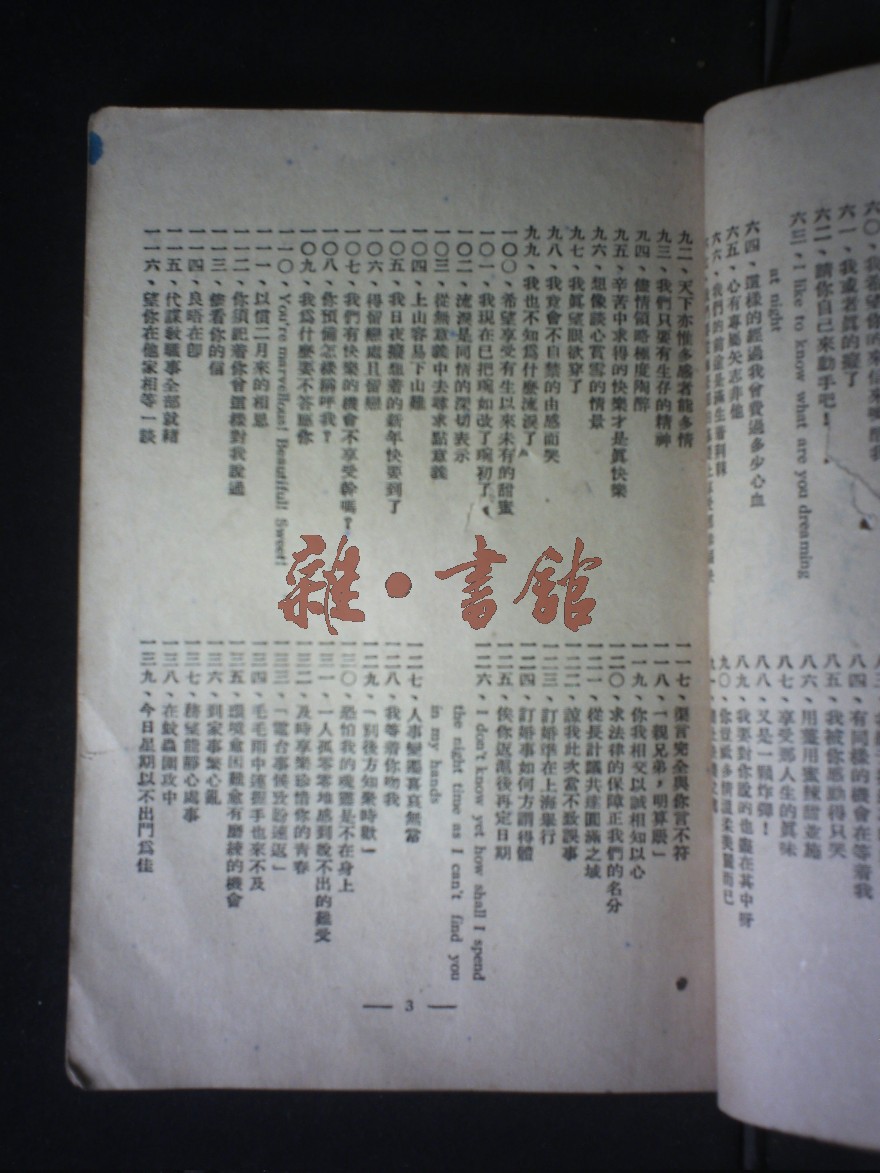 六一、我或者真的癡了
六二、請你自己來動手吧！
六三、I like to know what are you dreaming
at night
六四、這樣的經過我曾費過多少心血
六五、心有專屬矢志非他
八四、有同樣的機會在等着我
八五、我被你感動得只哭
八六、用薑用蜜辣甜並施
八七、享受那人生的真味
八八、又是一顆炸彈！
八九、我要對你說的也盡在其中呀
九二、天下亦惟多感者能多情
九三、我們只要有生存的精神
九四、儘情領略極度陶醉
九五、辛苦中求得的快樂才是眞快樂
九六、想像談心賞雪的情景
九七、我眞望眼欲穿了
九八、我竟會不自禁的由感而哭
九九、我也不知爲什麼流淚了
一〇〇、希望享受有生以來未有的甜蜜
一〇一、我現在已把琬如改了琬初了
一〇二、流淚是同情的深切表示
一〇三、從無意義中去尋求點意義
一〇四、上山容易下山難
一〇五、我日夜擬想着的新年快要到了
一〇六、得留戀處且留戀
一〇七、我們有快樂的機會不享受幹嗎？
一〇八、你預備怎樣稱呼我？
一〇九、我爲什麼要不答應你
一一〇、You're marvellous! Beautiful! Sweet!
一一一、以償二月來的相思
一一二、你須記着你曾這樣對我說過
一一三、儘看你的信
一一四、良晤在卽
一一五、代謀敎職事全部就緒
一一六、望你在他家相等一談
一一七、傑言完全與你言不符
一一八、「親兄弟，明算賬」
一一九、你我相交以誠相知以心
一二〇、求法律的保障正我們的名分
一二一、從長計議共踵圓滿之域
一二二、諒我此次當不致誤事
一二三、訂婚準在上海舉行
一二四、訂婚事如何方謂得體
一二五、俟你返滬後再定日期
一二六、I don't know yet how shall I spend
the night time as I can't find you
in my hands
一二七、人事變遷喜哀無常
一二八、我等着你吻我
一二九、「別後方知聚時歡」
一三〇、恐怕我的魂靈是不在身上
一三一、一人孤零零地感到說不出的難受
一三二、及時享樂珍惜你的靑春
一三三、「電台事候孜盼速返」
一三四、毛毛雨中連握手也來不及
一三五、環境愈困難愈有磨練的機會
一三六、到家事繁心亂
一三七、務望能靜心處事
一三八、在蚊蟲圍攻中
一三九、今日星期以不出門爲佳
— 3 —
雜·書舘